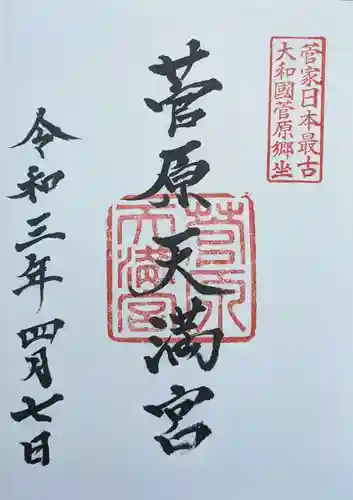 菅家日本最古
大和國菅原郷坐
菅原天満宮
令和三年四月七日